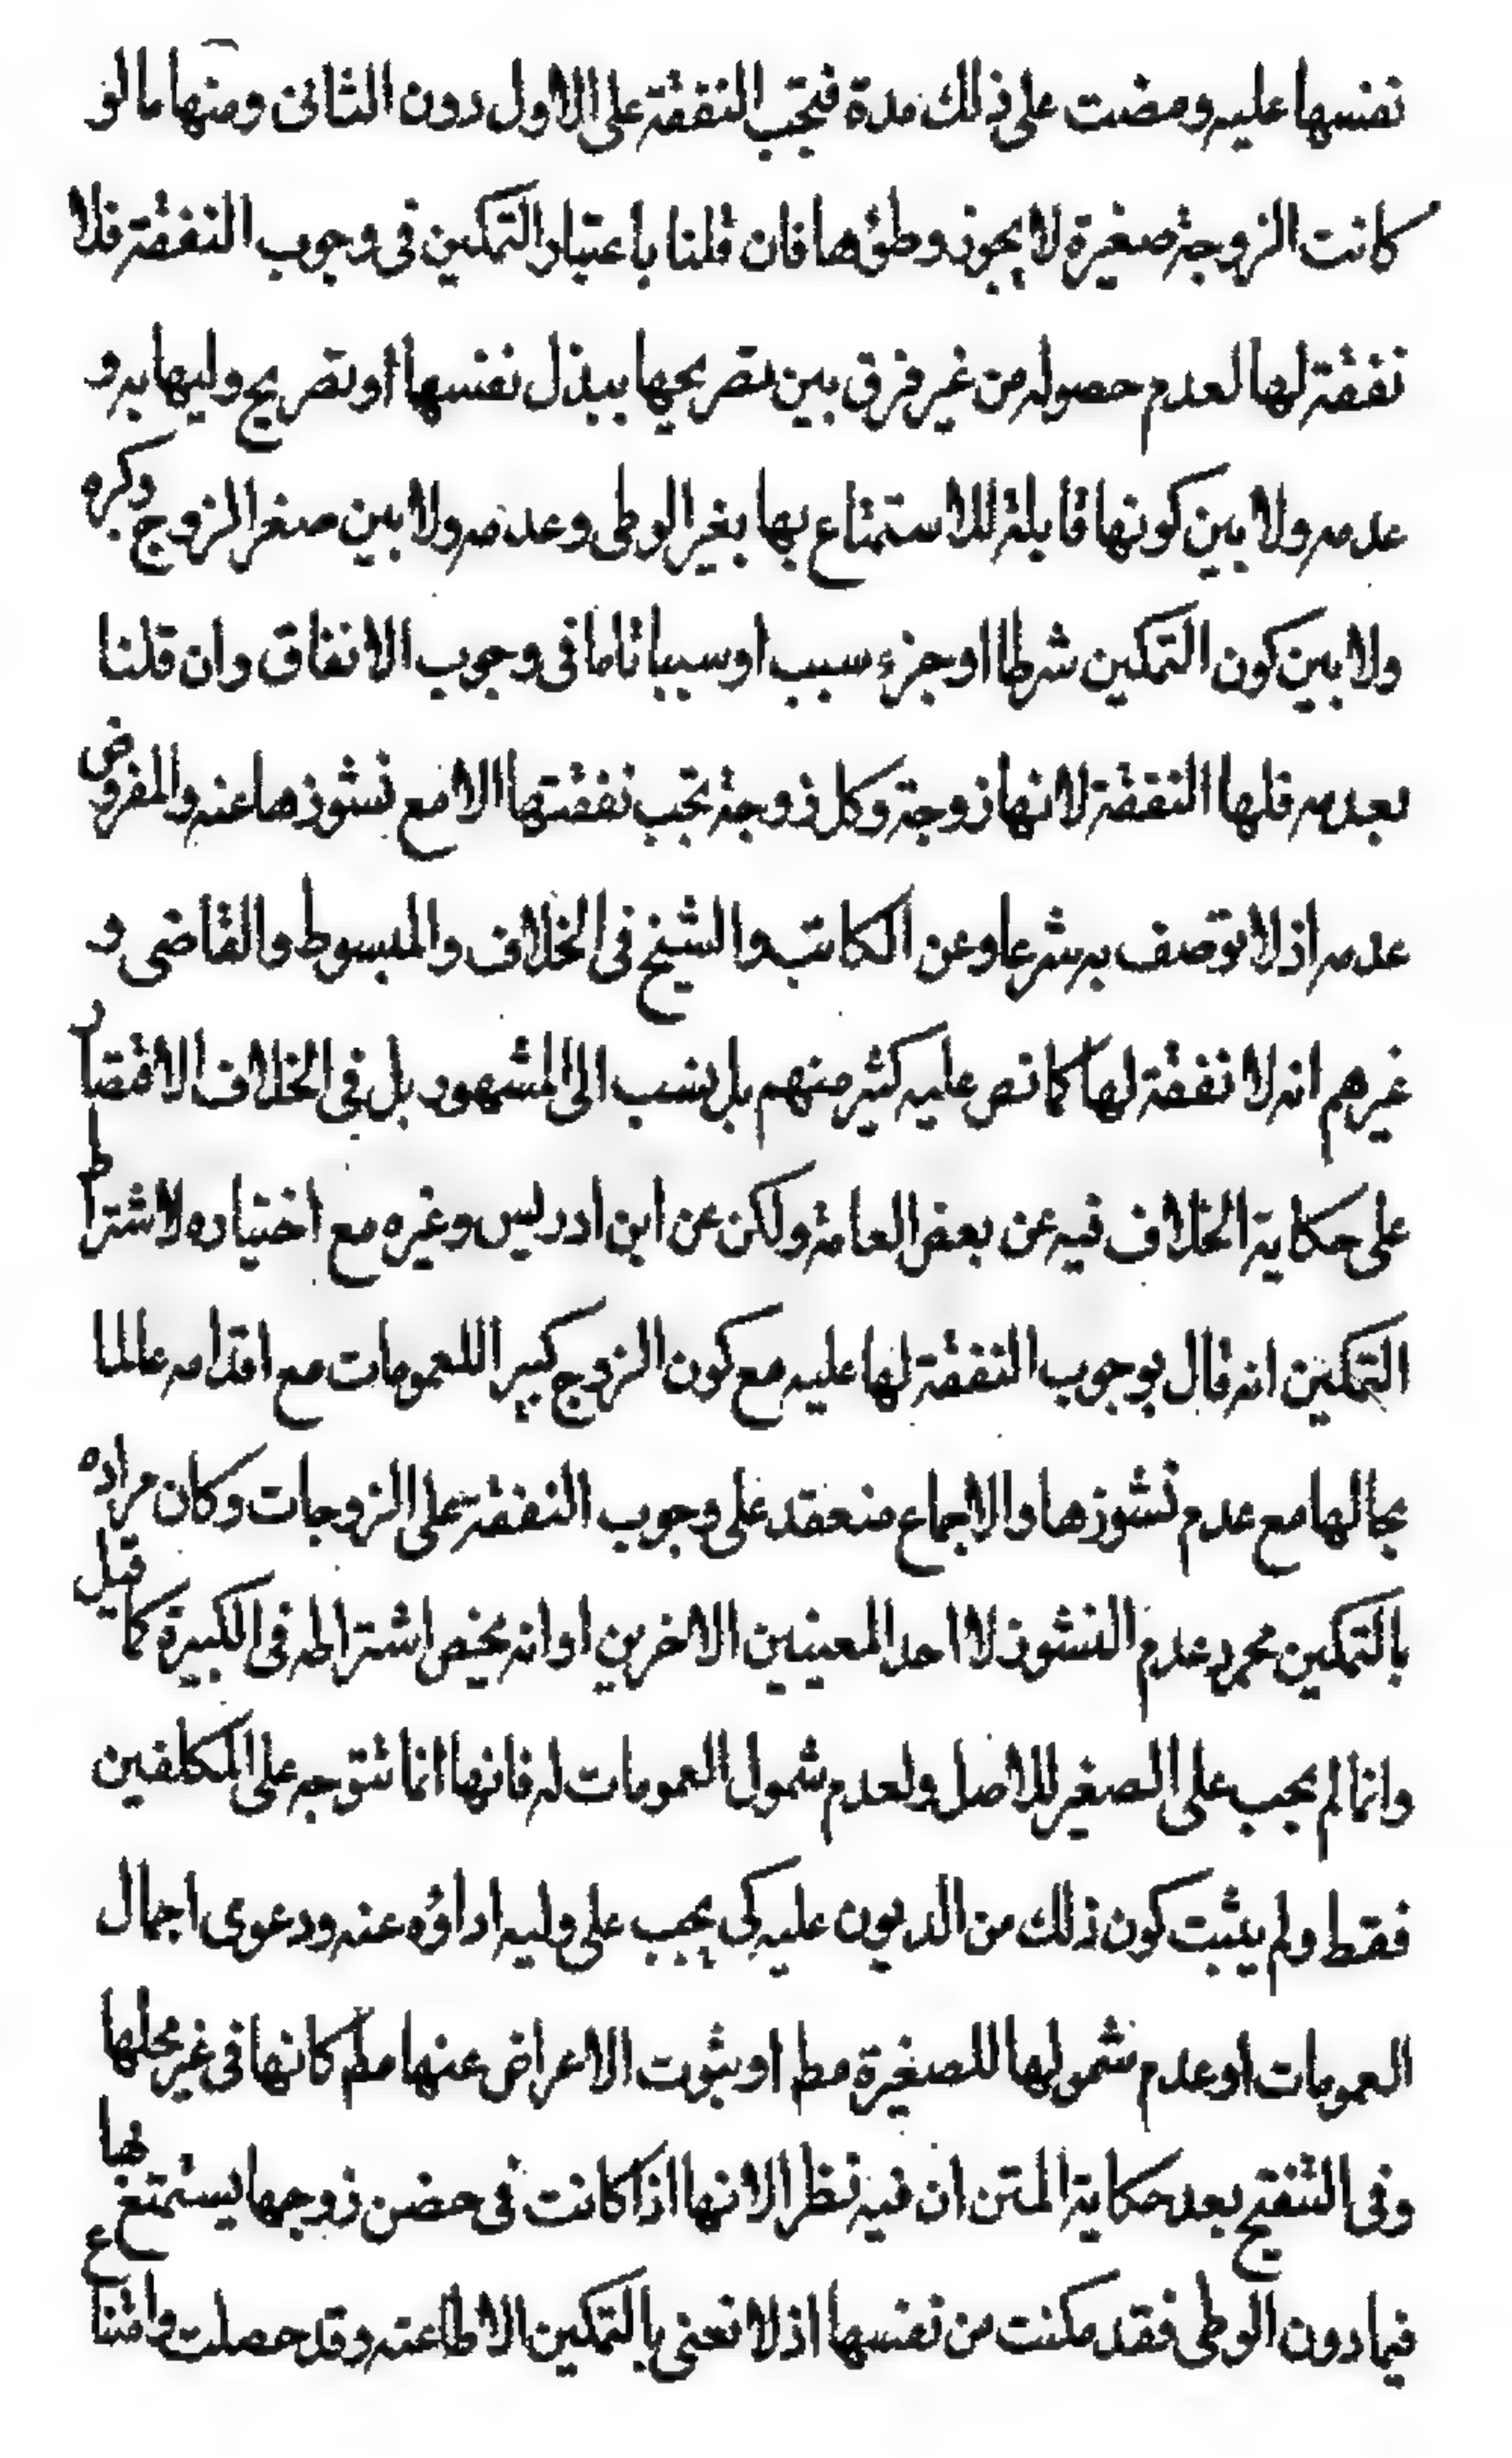 نفسها عليه ومضت على ذلك مدة فتجب النفقة على الاول دون الثانى ومنها ما لو
كانت الزوجة صغيرة لا يجوز وطؤها فان قلنا باعتبار التمكين فى وجوب النفقة فلا
نفقة لها لعدم حصوله من غير فرق بين تصريحها ببذل نفسها او تصريح وليها به و
عدمه ولا بين كونها قابلة للاستمتاع بها بغير الوطى وعدمه ولا بين صغر الزوج وكبره
ولا بين كون التمكين شرطا او جزء سبب او سببا تاما فى وجوب الانفاق وان قلنا
بعدمه فلها النفقة لانها زوجة وكل زوجة تجب نفقتها الا مع نشوزها عنه والمفروض
عدمه اذ لا توصف به شرعا وعن الكاتب والشيخ فى الخلاف والمبسوط والقاضى و
غيرهم انه لا نفقة لها كما نص عليه كثير منهم بل نسب الى المشهور بل فى الخلاف الاقتصار
على حكاية الخلاف فيه عن بعض العامة ولكن عن ابن ادريس وغيره مع اختياره لاشتراط
التمكين انه قال بوجوب النفقة لها عليه مع كون الزوج كبيرا للعمومات مع اقدامه عالما
بحالها مع عدم نشوزها والاجماع منعقد على وجوب النفقة على الزوجات وكان مراده
بالتمكين مجرد عدم النشوز لا احد المعنيين الاخرين او انه يخص اشتراطه فى الكبيرة كما قيل
وانما لم يجب على الصغير للاصل ولعدم شمول العمومات له فانها انما تتوجه على المكلفين
فقط ولم يثبت كون ذلك من الديون عليه كى يجب على وليه اداؤه عنه ودعوى اجمال
العمومات او عدم شمولها للصغيرة مط او ثبوت الاعراض عنها مط كانها فى غير محلها
وفى التنقيح بعد حكاية المتن ان فيه نظرا لانها اذا كانت فى حضن زوجها يستمتع بها
فيما دون الوطى فقد مكنت من نفسها اذ لا نعنى بالتمكين الا الطاعته وقد حصلت وامتناع